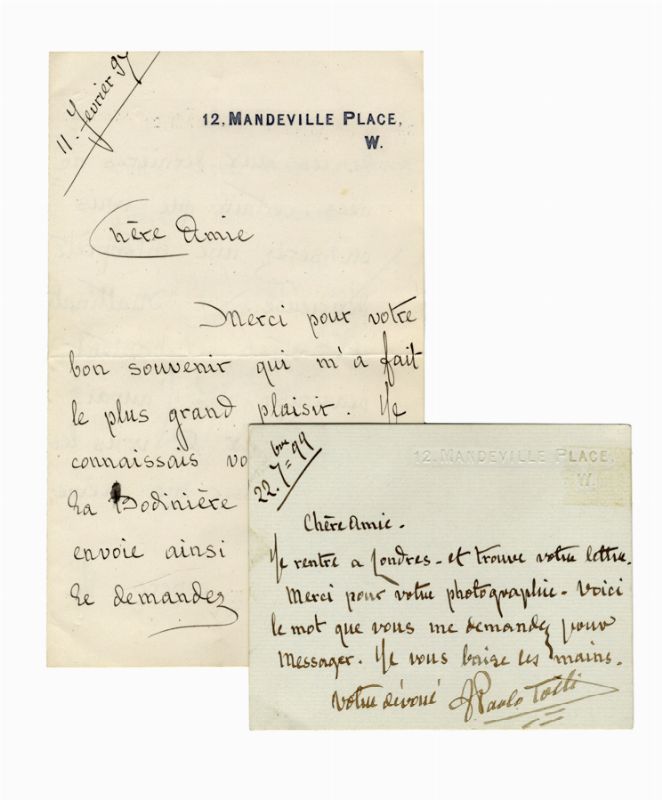 11. Février 97
12, MANDEVILLE PLACE,
W.
Chère Amie
Merci pour votre
bon souvenir qui m'a fait
le plus grand plaisir. Je
connaissais vo
La Bodinière
envoie ainsi
le demandez
22. 7bre 99
12, MANDEVILLE PLACE,
W.
Chère Amie.
Je rentre a Londres - et trouve votre lettre.
Merci pour votre photographie - Voici
le mot que vous me demandez pour
Messager. Je vous baise les mains.
Votre dévoué F Paolo Tosti